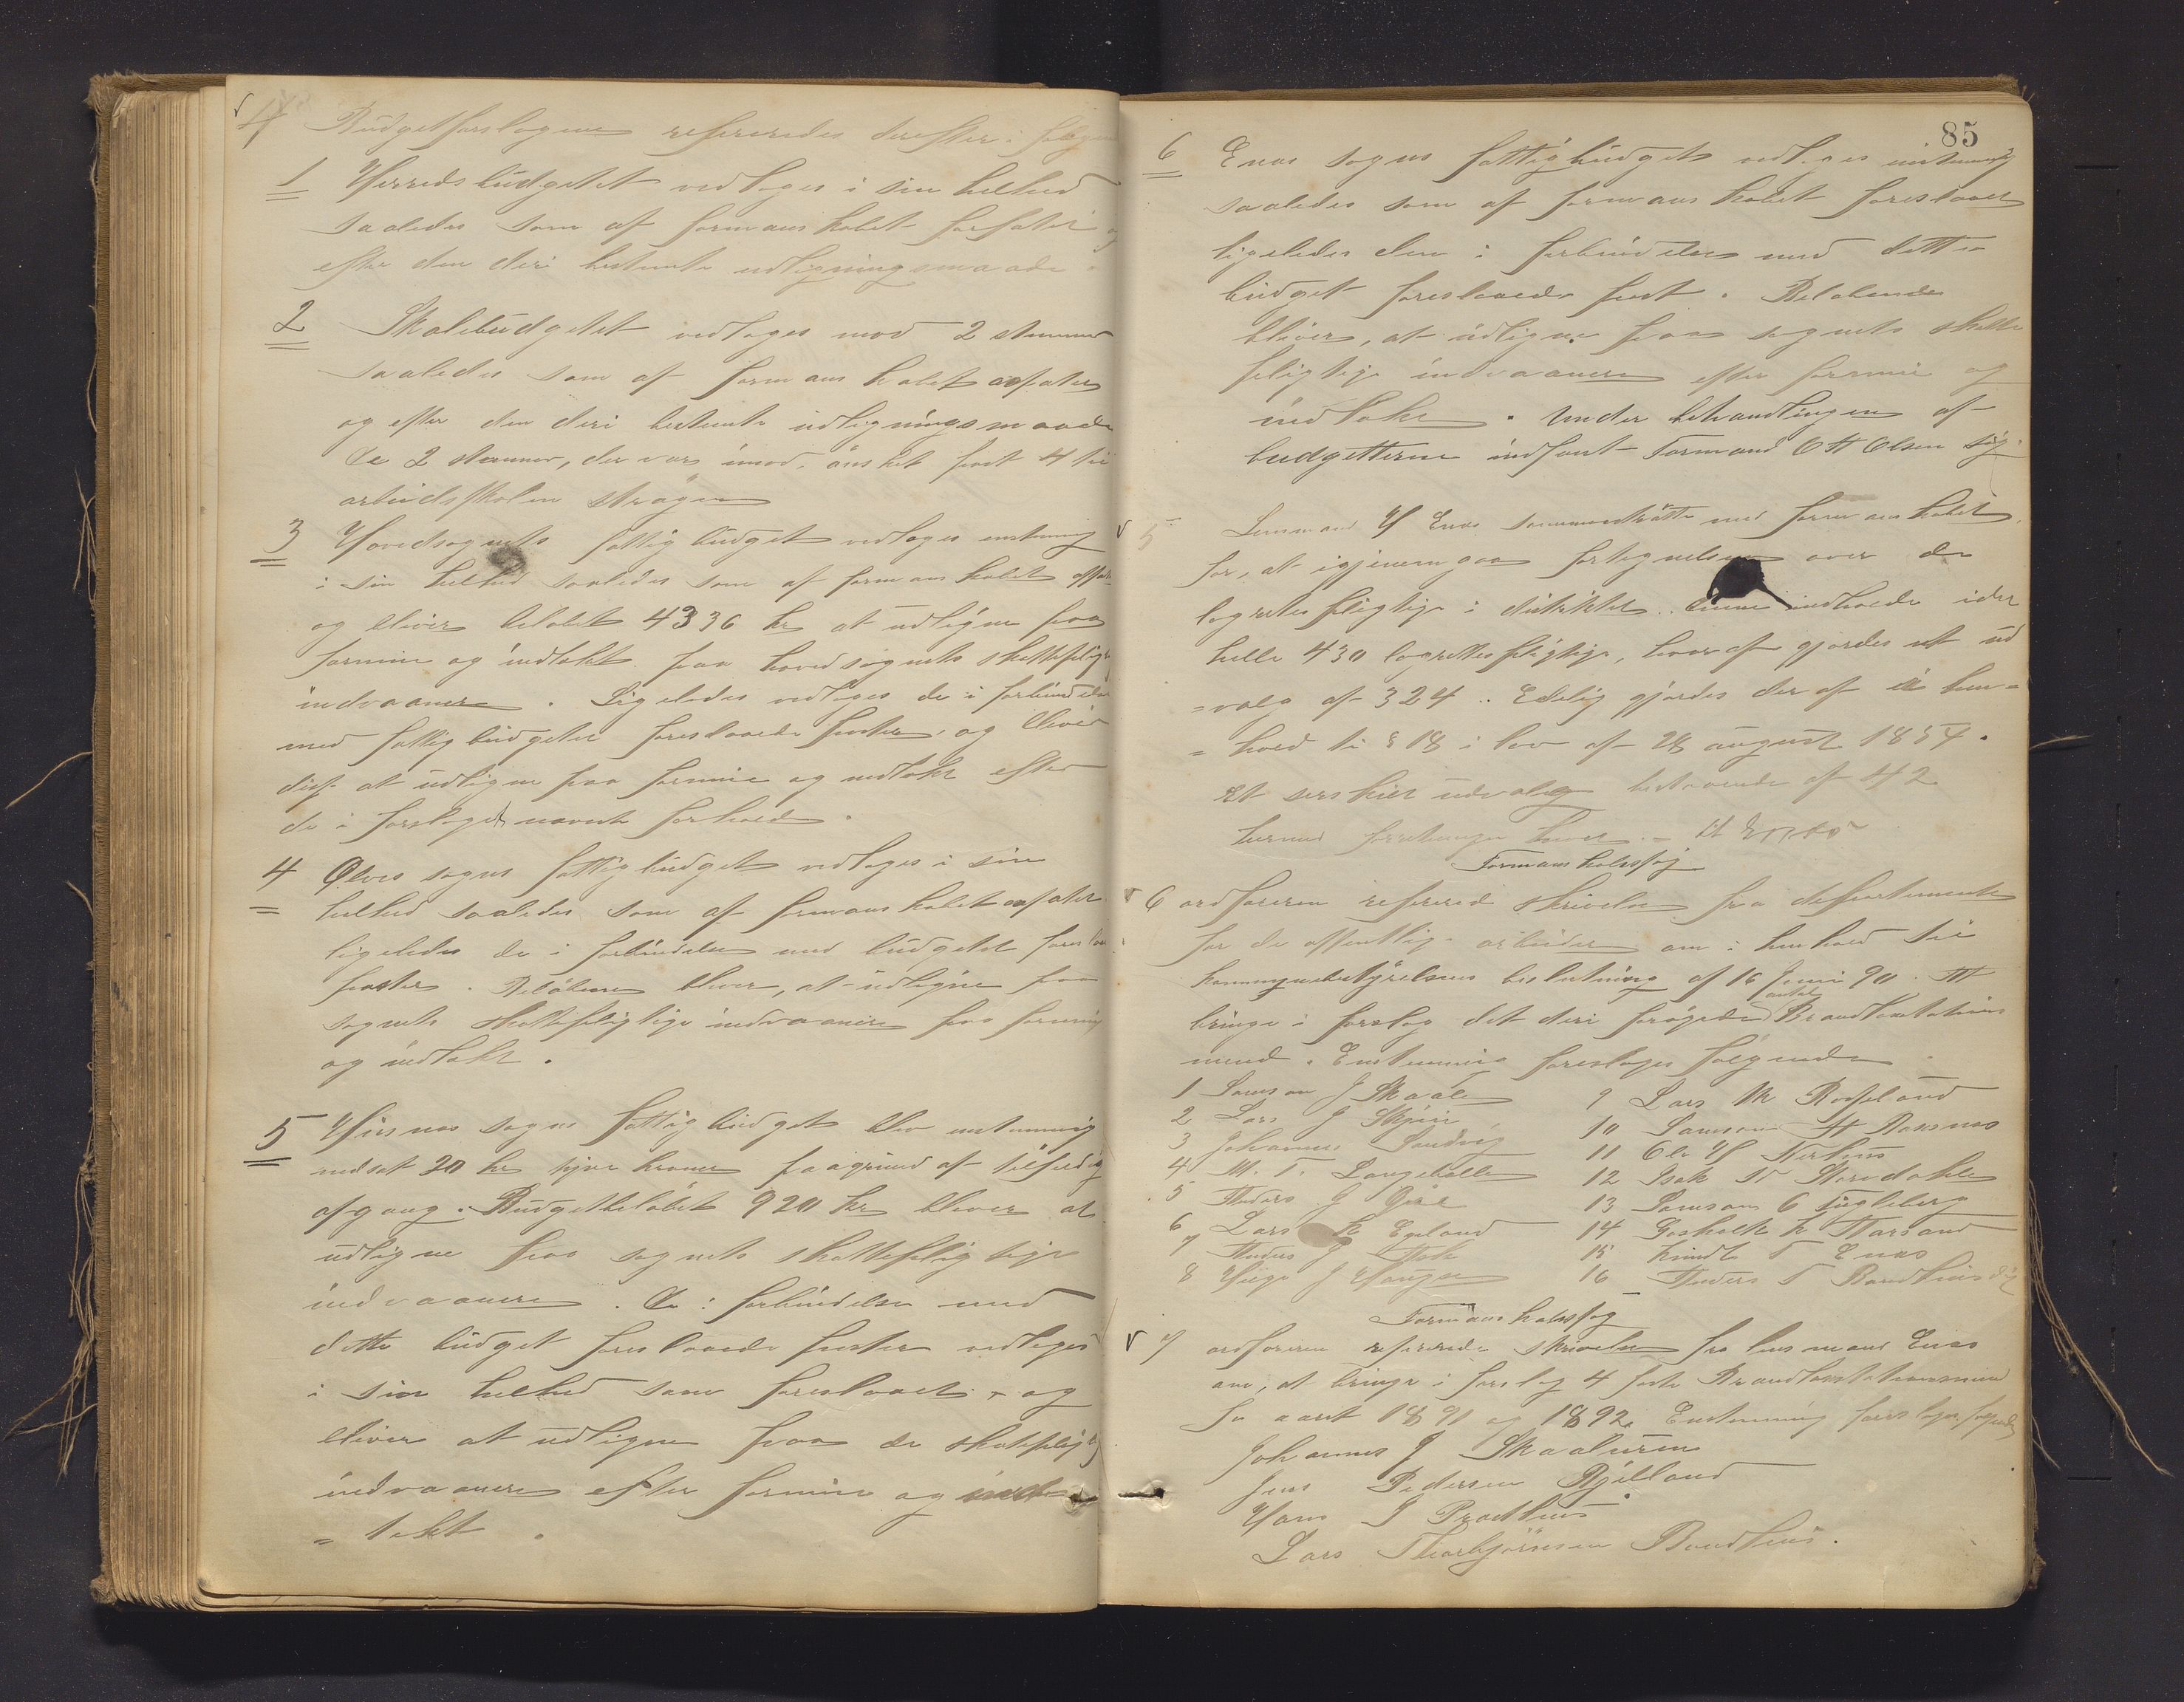 4 Budgetforslagene refereredes derefter i følgen
1 Herredsbudgettet vedtoges i sin helhed
saaledes som af formanskabet forfatet og
efter den deri bestemte udligningsmaade.
2 Skolebudgettet vedtoges mod 2 stemmer
saaledes som af formanskabet affatet
og efter den deri bestemte udligningsmaade
De 2 stemmer, der var imod, önsket post 4 til
arbeidsskolen strögen
3 Hovedsognets fattigbudget vedtoges enstemig
i sin helhed saaledes som af formanskabet affat
og bliver belobet 4336 kr at udligne paa
formue og indtekt paa hovedsognets skattepligt
indvaanere. Ligeledes vedtoges de i forbindelse
med fattigbudgetet foreslaaede poster, og bliver
disse at udligne paa formue og indtekt efter
de i forslaget nævnte forhold.
4 Ølves sogns fattigbudget vedtoges i sin
helhed saaledes som af formanskabet affatet
ligeledes de i forbindelse med budgetet foreslaa
poster. Belöbene bliver, at udligne paa
sognets skattepligtige indvaanere paa formue
og indtekt.
5 Husnes sogns fattigbudget blev enstemmig
nedsat 20 kr tjve kroner paagrund af tilfeldig
afgang. Budgetbelöbet 920 kr bliver at
udligne paa sognets skattepligtige
indvaanere. De i forbindelse med
dette budget foreslaaede poster vedtoges
i sin helhed som foreslaaet, og
bliver at udligne paa de skatteplig
indvaanere efter formue og ind
= tekt.
85
6 Enes sogns fattigbudget vedtoges enstemmig
saaledes som af formanskabet foreslaaet
ligeledes den i forbindelse med dette
budget foreslaaede post. Belobende
bliver, at udligne paa sognets skatte
pligtige indvaanere efter formue og
indtekt. Under behandlingen af
budgetterne indfant Formand O H Olsen sig.
5 Lensmand H Enes sammenträtte med formanskabet
for, at igjenemgaa fortegnelsen over de
lagrettespligtige i distriktet. Denne indholdt ider
helle 430 lagrettespligtige, hvoraf gjordes et ud
=valg af 324. Edelig gjordes der af i hen=
=hold til § 18 i lov af 28 august 1854.
et serskilt udvalg bestaaende af 42
Formanskabssag
6 ordføreren refererede skrivelse fra departementet
for de offentlige arbeider om i henhold til
kommunebestyrelsens beslutning af 16 Juni 90. At
bringe i forslag det deri forögede antal Brandtakstations
mend. Enstemmig foresloges følgende
1 Samson J Skaale
2 Lars J Skjeie
3 Johannes Sandvig
4 M. T. Langeballe
5 Anders J Øie
6 Lars K Epland
7 Anders J
8 Helge J Haugen
9 Lars M Rofseland
10 Samson H
11 Ole H
12 Isak N
13 Samson O Fugleberg
14 Goskalk K Aarsand
15 Knudt T Enes
16 Anders T Bondhus
Formanskabssag
7 ordføreren refererede skrivelse fra lensmand Enes
om, at bringe i forslag 4 faste Brandtakstationsmend
for aaret 1891 og 1892. Enstemmig foresloges følgende
Johannes J Skaaluren
Jens Pedersen Bjelland
Hans J Prœsthus
Lars Thorbjörnsen Bondhus.